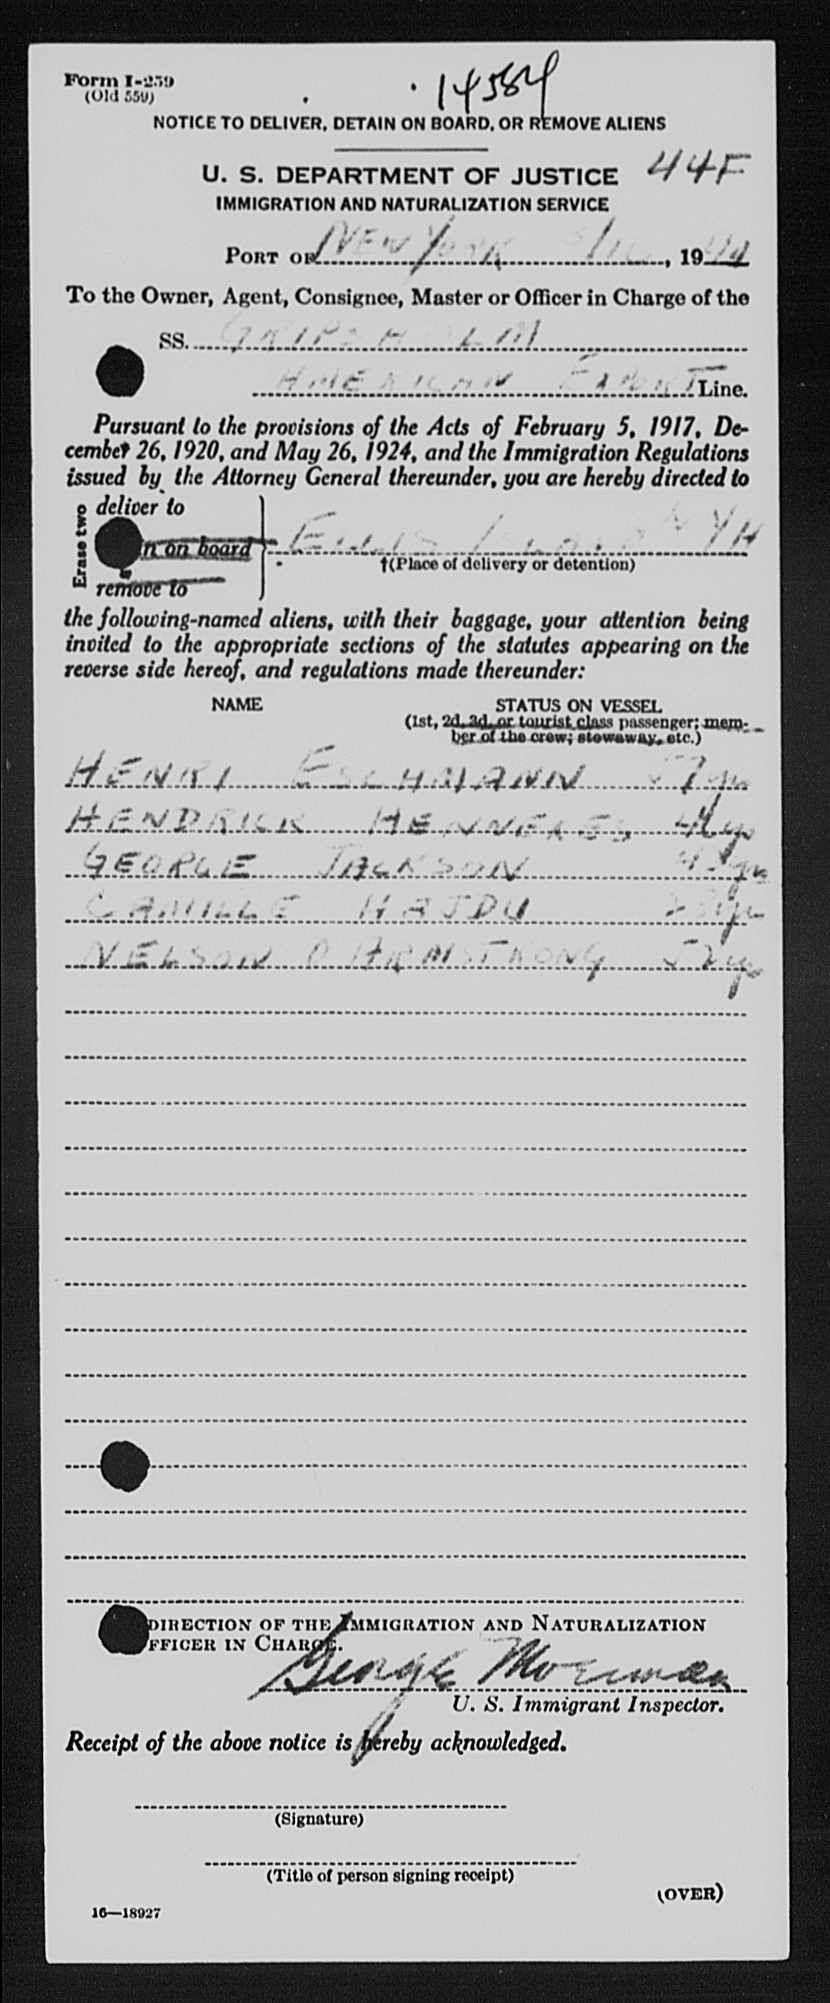 Form I-259
(Old 559)
14584
NOTICE TO DELIVER, DETAIN ON BOARD, OR REMOVE ALIENS
44F
U. S. DEPARTMENT OF JUSTICE
IMMIGRATION AND NATURALIZATION SERVICE
PORT OF NEW YORK , 1944
To the Owner, Agent, Consignee, Master or Officer in Charge of the
SS. GRIPSHOLM
AMERICAN EXPORT Line.
Pursuant to the provisions of the Acts of February 5, 1917, De-
cember 26, 1920, and May 26, 1924, and the Immigration Regulations
issued by the Attorney General thereunder, you are hereby directed to
Erase two
deliver to
n on board ELLIS ISLAND NYH
†(Place of delivery or detention)
remove to
the following-named aliens, with their baggage, your attention being
invited to the appropriate sections of the statutes appearing on the
reverse side hereof, and regulations made thereunder:
NAME STATUS ON VESSEL
(1st, 2d, 3d, or tourist class passenger; mem-
ber of the crew; stowaway, etc.)
HENRI ESCHMANN 57 yrs
HENDRICK HENNEKES
GEORGE JACKSON
CAMILLE HAJDU 28 yrs
NELSON O ARMSTRONG 52 yrs
DIRECTION OF THE IMMIGRATION AND NATURALIZATION
FFICER IN CHARGE.
George Moerman
U. S. Immigrant Inspector.
Receipt of the above notice is hereby acknowledged.
(Signature)
(Title of person signing receipt)
(OVER)
16—18927